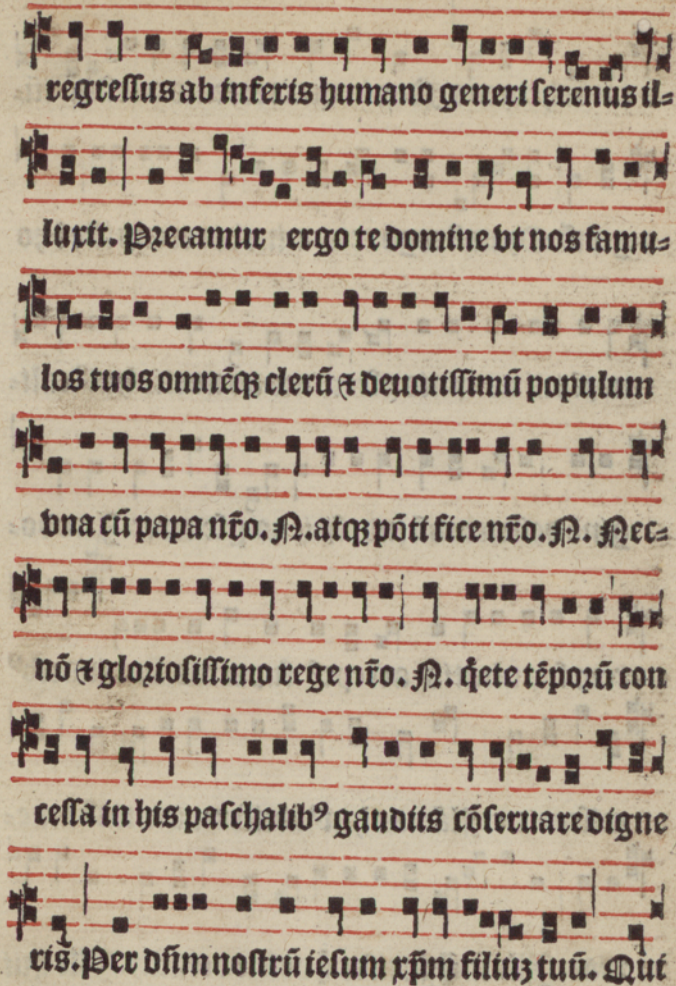 regressus ab inferis humano generi serenus il⸗
luxit. Precamur ergo te domine vt nos famu⸗
los tuos omnēqꝫ clerū ⁊ deuotissimū populum
vna cū papa nr̄o. N. atqꝫ pōti fice nr̄o. N. Nec⸗
nō ⁊ gloriosissimo rege nr̄o. N. q̇ete tēporū con
cessa in his paschalibꝰ gaudiis cōseruare digne
ris̄. Per dn̄m nostrū iesum xp̄m filiuꝫ tuū. Qui